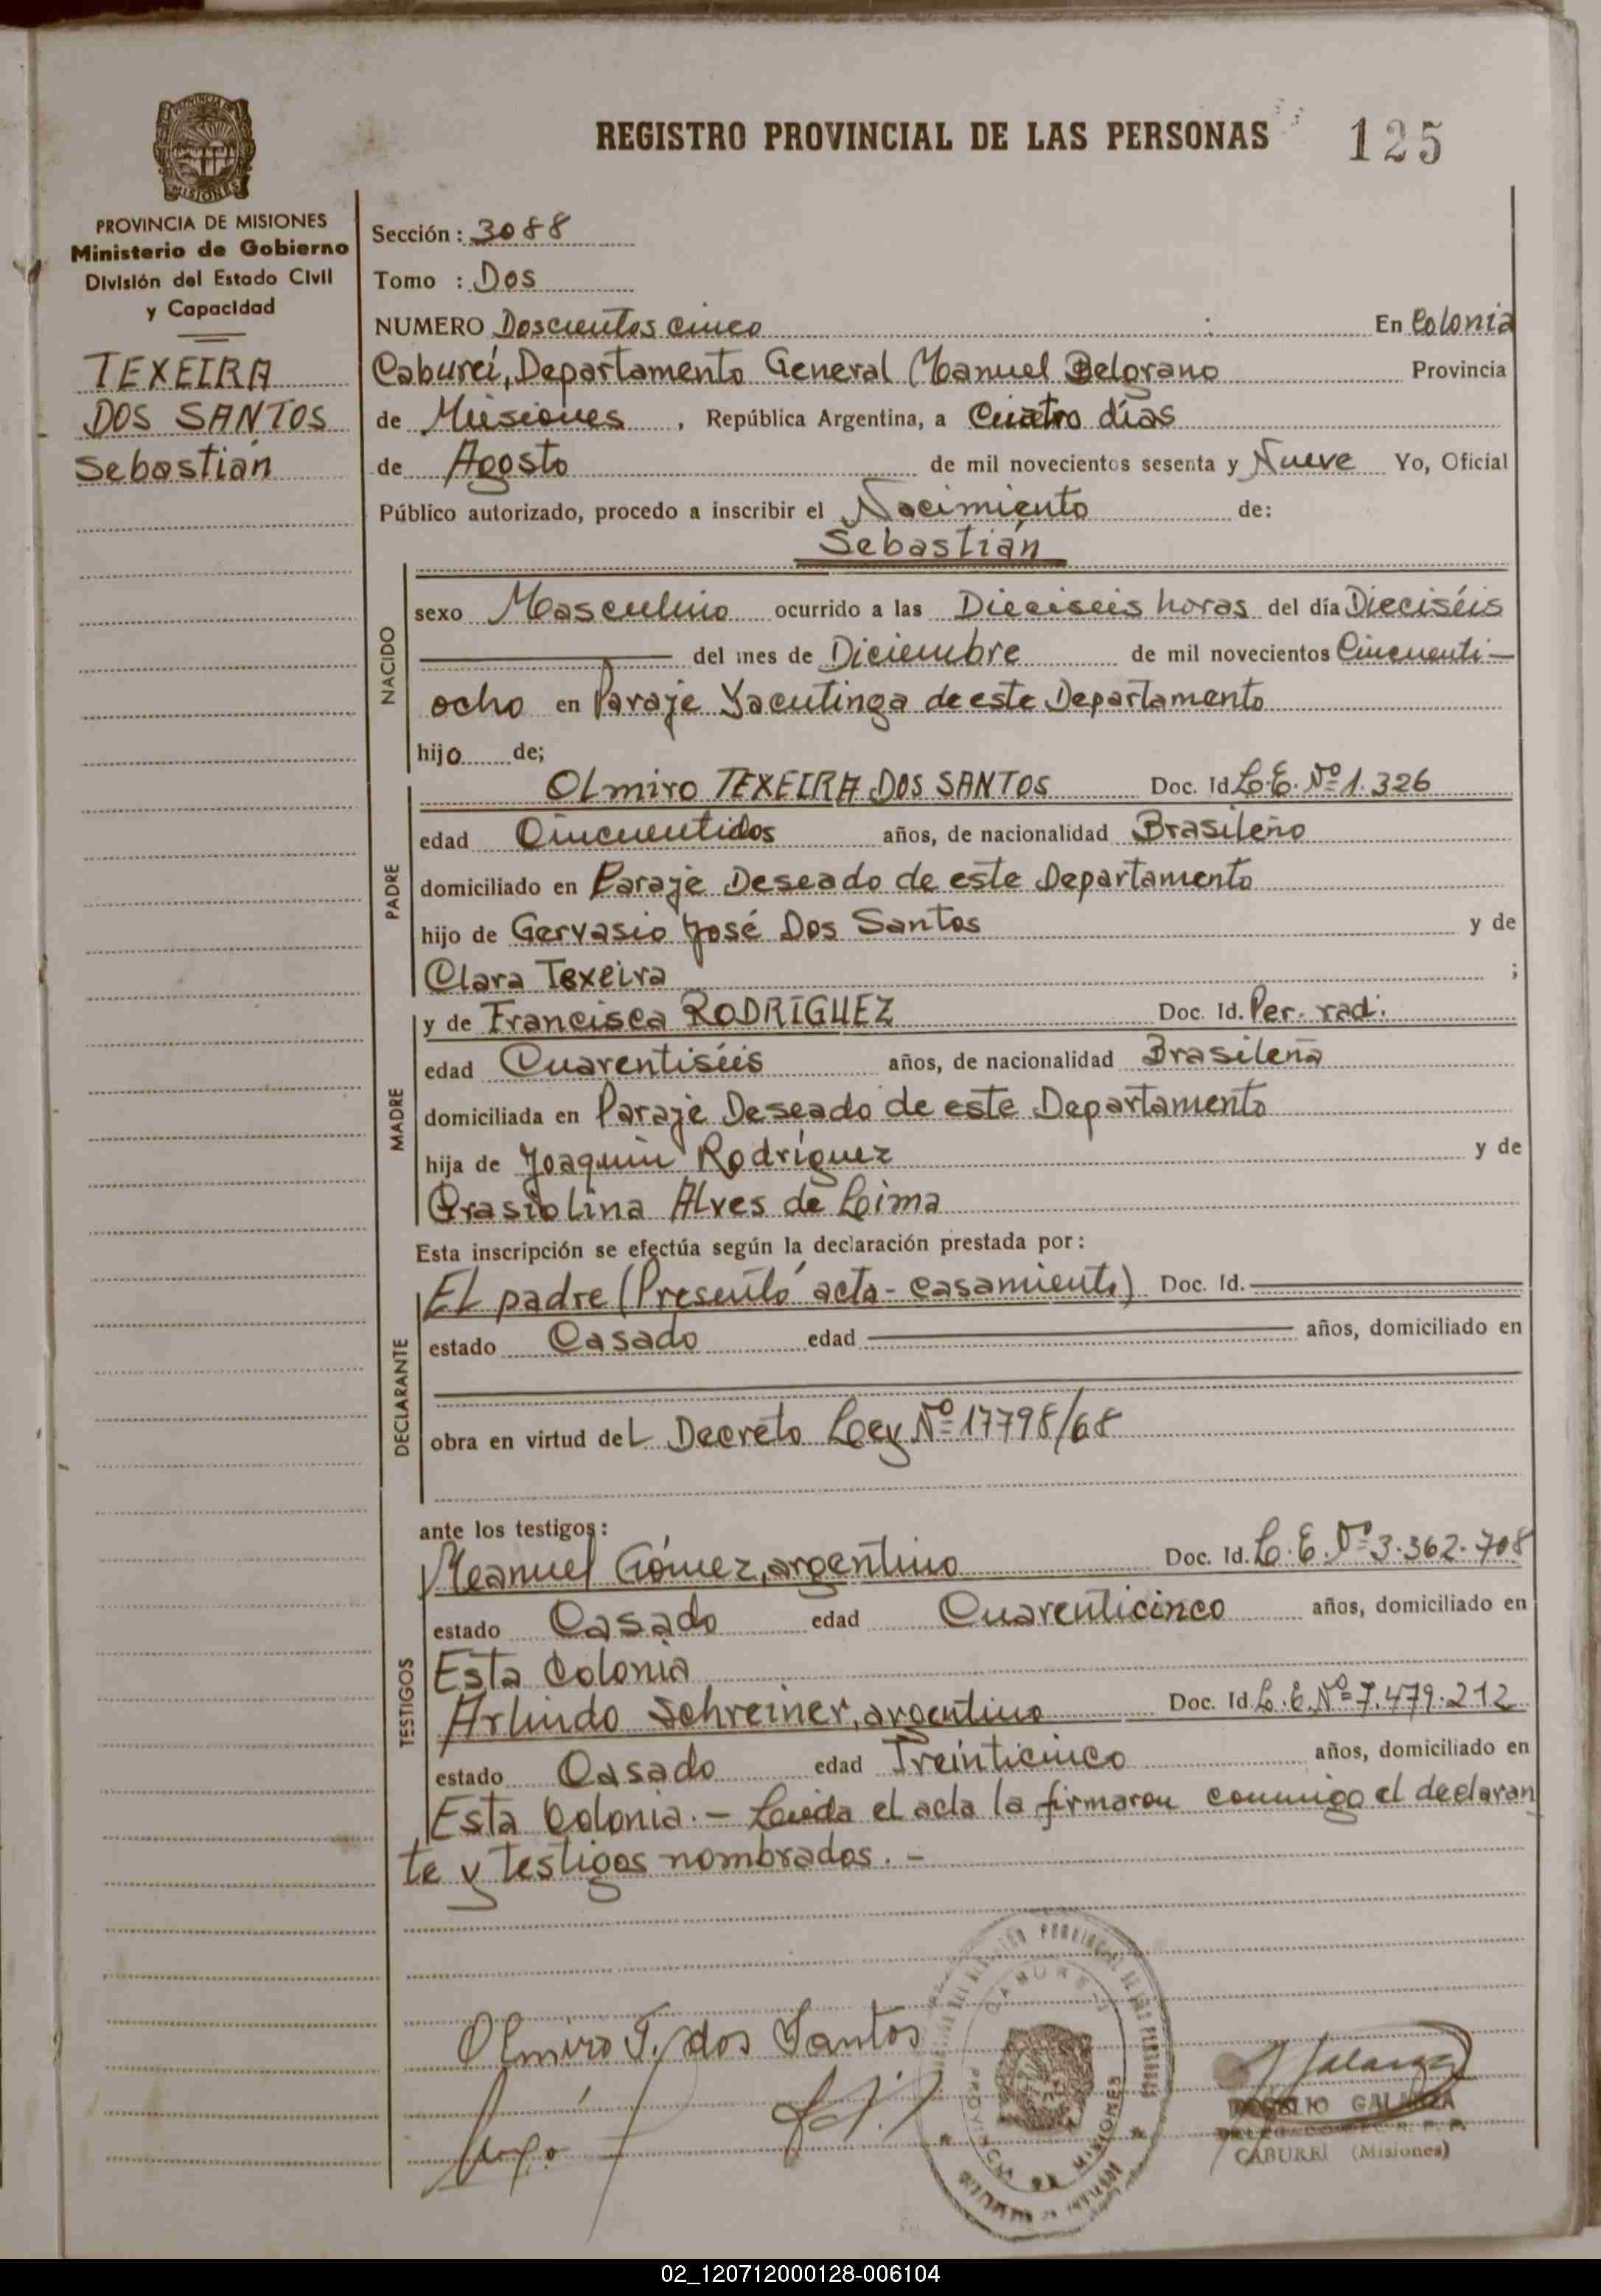 REGISTRO PROVINCIAL DE LAS PERSONAS 125
PROVINCIA DE MISIONES
MISIONES
PROVINCIA DE MISIONES
Ministerio de Gobierno
División del Estado Civil
y Capacidad
TEXEIRA
DOS SANTOS
Sebastián
Sección: 3088
Tomo : Dos
NUMERO Doscientos cinco En Colonia
Caburei, Departamento General Manuel Belgrano Provincia
de Misiones, República Argentina, a Cuatro días
de Agosto de mil novecientos sesenta y Nueve Yo, Oficial
Público autorizado, procedo a inscribir el Nacimiento de:
Sebastián
NACIDO
sexo Masculino ocurrido a las Dieciseis horas del día Dieciséis
del mes de Diciembre de mil novecientos Cincuenti-
ocho en Paraje Yacutinga de este Departamento
hijo de;
PADRE
Olmiro TEXEIRA DOS SANTOS Doc. Id L.E. Nº 1.326
edad Cincuentidos años, de nacionalidad Brasileño
domiciliado en Paraje Deseado de este Departamento
hijo de Gervasio José Dos Santos y de
Clara Texeira ;
MADRE
y de Francisca RODRÍGUEZ Doc. Id. Per. rad.
edad Cuarentiséis años, de nacionalidad Brasileña
domiciliada en Paraje Deseado de este Departamento
hija de Joaquín Rodríguez y de
Grasiolina Alves de Lima
Esta inscripción se efectúa según la declaración prestada por:
DECLARANTE
El padre (Presentó acta-casamiento) Doc. Id.
estado Casado edad años, domiciliado en
obra en virtud del Decreto Ley Nº 17798/68
ante los testigos:
TESTIGOS
Manuel Gómez, argentino Doc. Id. L.E. Nº 3.362.708
estado Casado edad Cuarenticinco años, domiciliado en
Esta Colonia
Arlindo Schreiner, argentino Doc. Id. L.E. Nº 7.479.212
estado Casado edad Treinticinco años, domiciliado en
Esta Colonia.- Leída el acta la firmaron conmigo el declaran
te y testigos nombrados.-
Olmiro T. dos Santos
CABUREI
PROVINCIA DE MISIONES
ROGELIO GALARZA
DELEGADO DEL R. P. P.
CABUREI (Misiones)
02_120712000128-006104